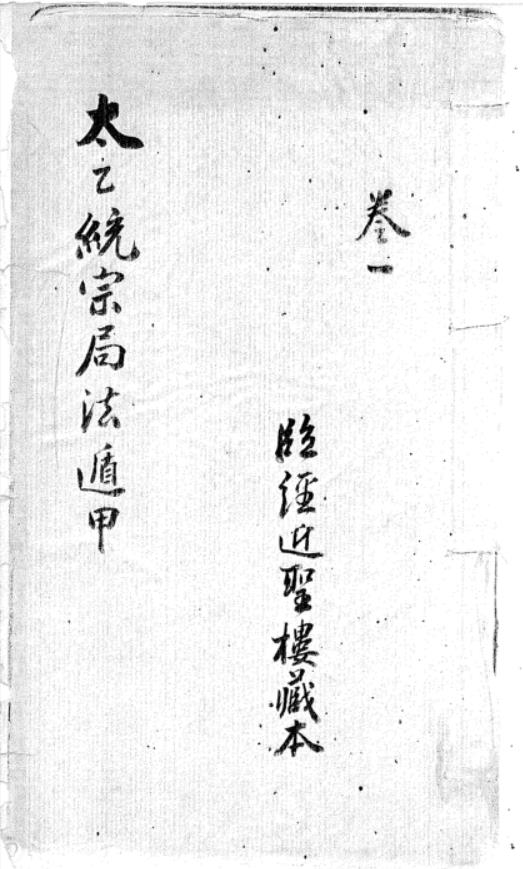 卷一
臨經近聖樓藏本
太乙統宗局法遁甲